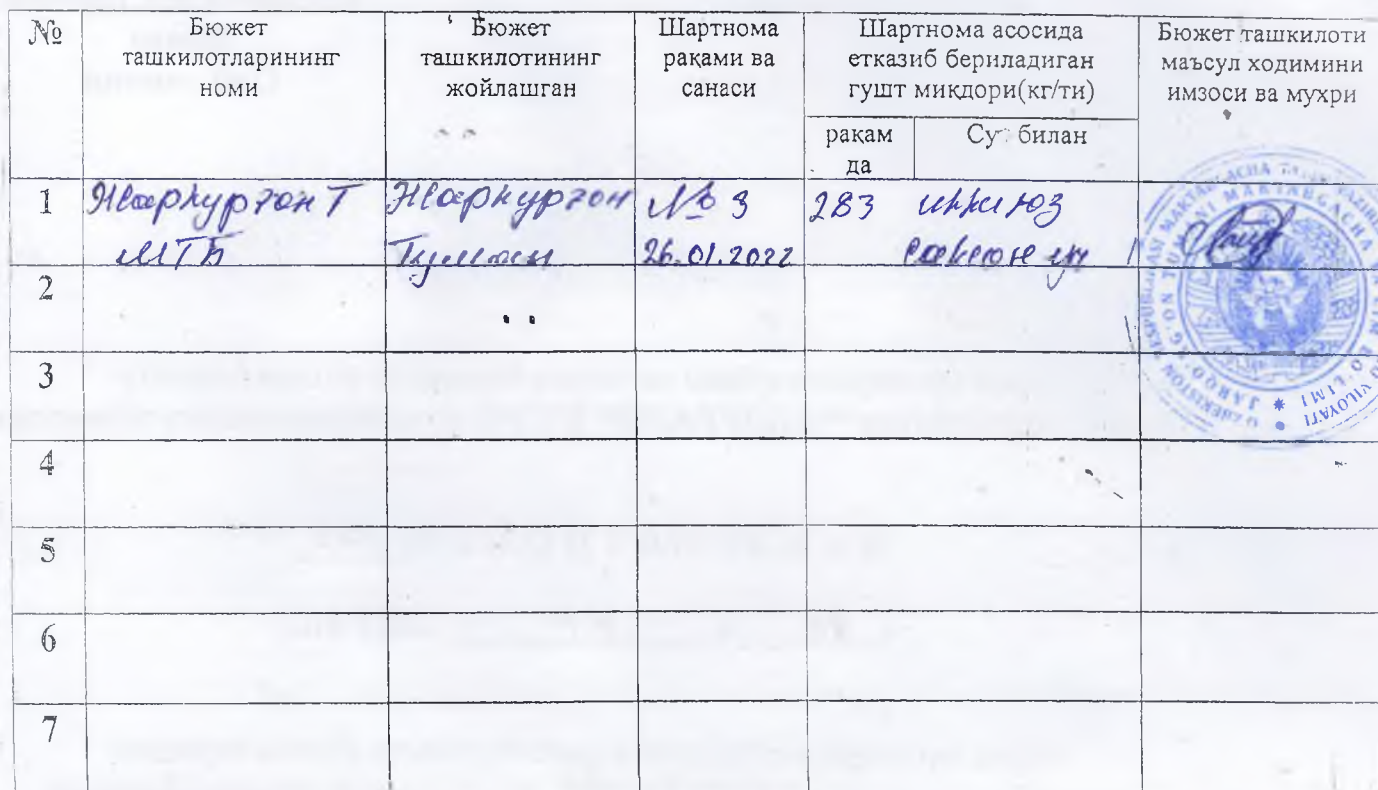 №
Бюжет
ташкилотларининг
номи
Бюжет
ташкилотининг
жойлашган
Шартнома
рақами ва
санаси
Шартнома асосида
етказиб бериладиган
гушт микдори(кг/ти)
рақам
да
Су билан
Бюжет ташкилоти
маъсул ходимини
имзоси ва мухри
1
Жаркургон Т
МТБ
Жаркургон
Тумани
№ 9
26.01.2022
283
икки юз
саксон уч
2
3
4
5
6
7